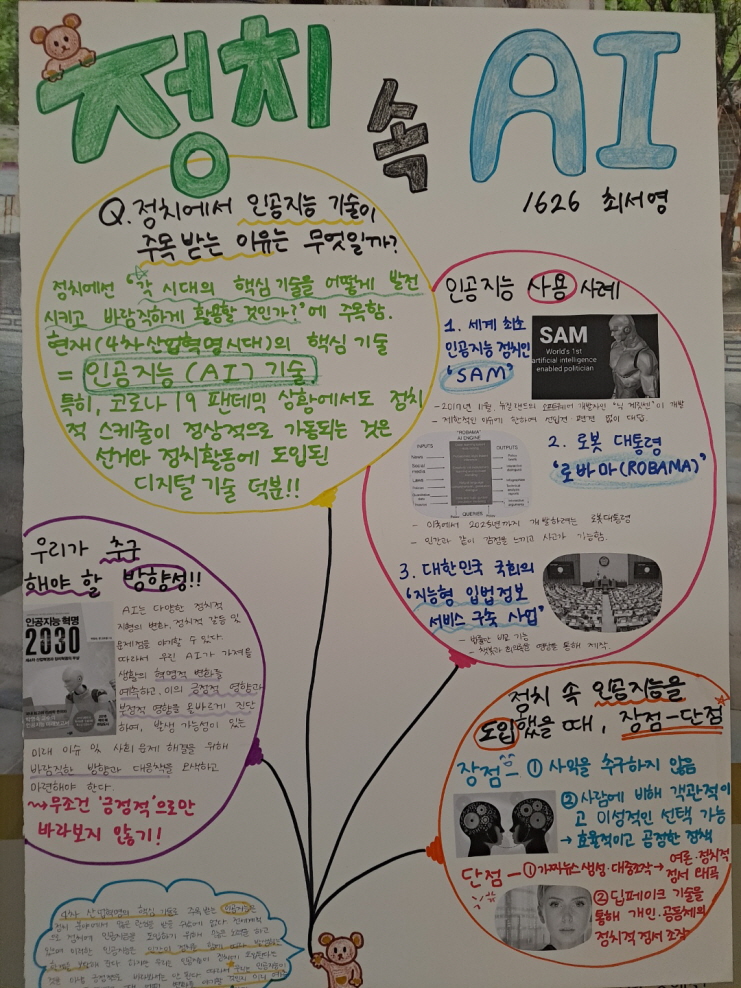 정치 속 AI
1626 최서영
Q. 정치에서 인공지능 기술이
주목 받는 이유는 무엇일까?
정치에선 "각 시대의 핵심기술을 어떻게 발전
시키고 바람직하게 활용할 것인가?"에 주목함.
현재(4차산업혁명시대)의 핵심 기술
= 인공지능(AI) 기술.
특히, 코로나19 팬데믹 상황에서도 정치
적 스케줄이 정상적으로 가동되는 것은
선거와 정치활동에 도입된
디지털 기술 덕분!!
인공지능 사용 사례
1. 세계 최초
인공지능 정치인
"SAM"
SAM
World's 1st
artificial intelligence
enabled politician
- 2017년 11월, 뉴질랜드의 소프트웨어 개발자인 "닉 게릿센"이 개발
2. 로봇 대통령
"로바마(ROBAMA)"
"ROBAMA"
AI ENGINE
INPUTS
OUTPUTS
News
Social
Media
Laws
QUERIES
- 미국에서 2025년까지 개발하려는 로봇대통령
- 인간과 같이 감정을 느끼고 사고가 가능함.
3. 대한민국 국회의
"지능형 입법정보
서비스 구축 사업"
- 법률안 비교 기능
- 챗봇과 회의록을 통해 제작.
우리가 추구
해야 할 방향성!!
인공지능 혁명
2030
AI는 다양한 정치적
지형의 변화, 정치적 갈등 및
문제점을 야기할 수 있다.
따라서 우린 AI가 가져올
생활의 혁명적 변화를
예측하고, 이의 긍정적 영향과
부정적 영향을 올바르게 진단
하여, 발생 가능성이 있는
미래 이슈 및 사회 문제 해결을 위해
바람직한 방향과 대응책을 모색하고
마련해야 한다.
→무조건 '긍정적'으로만
바라보지 않기!
정치 속 인공지능을
도입했을 때, 장점-단점
장점 - ① 사익을 추구하지 않음
② 사람에 비해 객관적이
고 이성적인 선택 가능
→ 효율적이고 공정한 정책
단점 - ① 가짜뉴스 생성·대중조작 → 여론·정치적
정서 왜곡
② 딥페이크 기술을
통해 개인·공동체의
정치적 정서 조작
4차 산업혁명의 핵심 기술로 주목 받는 인공지능은